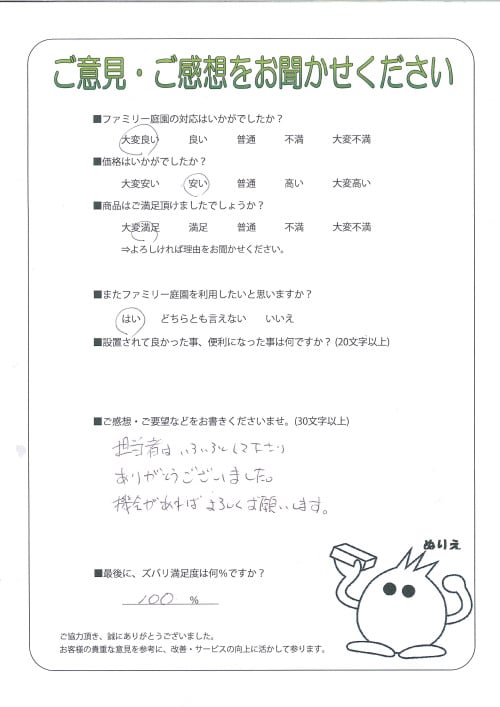 ご意見・ご感想をお聞かせください
■ファミリー庭園の対応はいかがでしたか？
大変良い　良い　普通　不満　大変不満
■価格はいかがでしたか？
大変安い　安い　普通　高い　大変高い
■商品はご満足頂けましたでしょうか？
大変満足　満足　普通　不満　大変不満
⇒よろしければ理由をお聞かせください。
■またファミリー庭園を利用したいと思いますか？
はい　どちらとも言えない　いいえ
■設置されて良かった事、便利になった事は何ですか？(20文字以上)
■ご感想・ご要望などをお書きくださいませ。(30文字以上)
担当者はいろいろして下さり
ありがとうございました。
機会があればよろしくお願いします。
ぬりえ
■最後に、ズバリ満足度は何％ですか？
100 ％
ご協力頂き、誠にありがとうございました。
お客様の貴重な意見を参考に、改善・サービスの向上に活かして参ります。